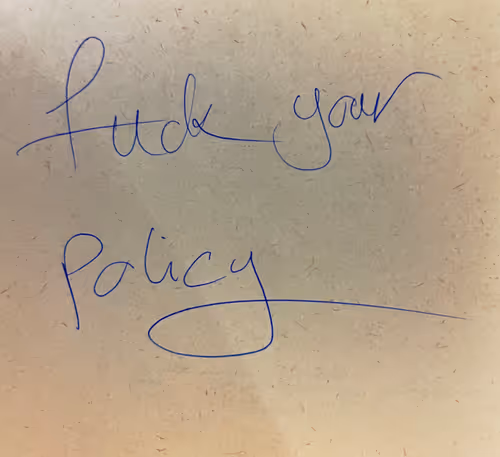 fuck your
policy